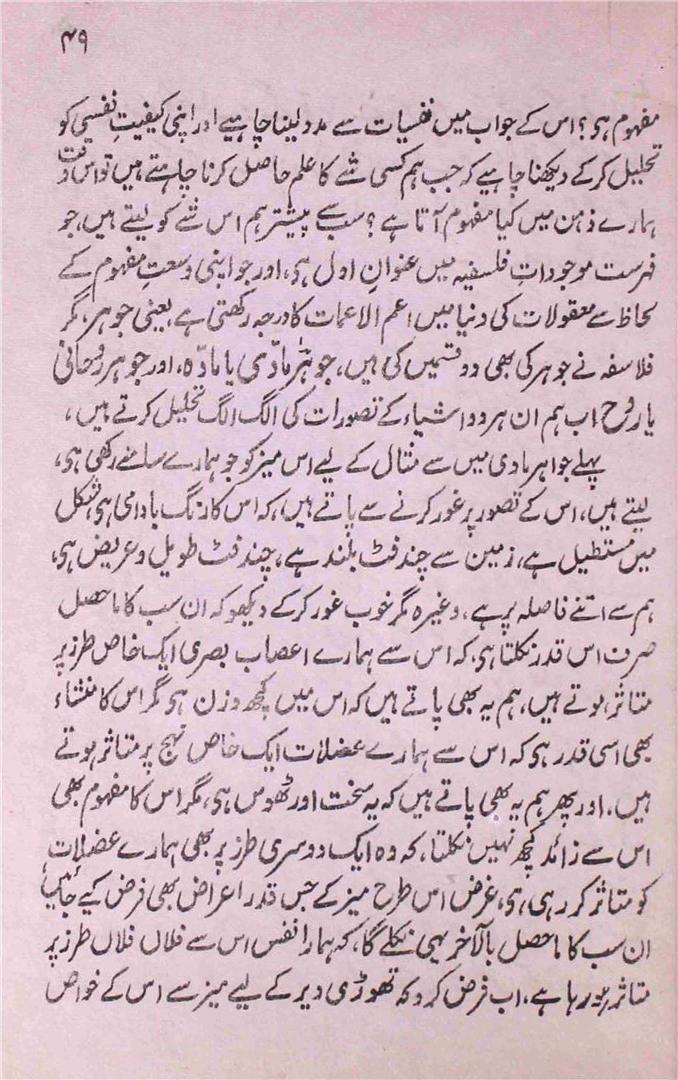 ۴۹
مفہوم ہو؟ اس کے جواب میں نفسیات سے مدد لینا چاہیے اور اپنی کیفیتِ نفسی کو
تحلیل کر کے دیکھنا چاہیے کہ جب ہم کسی شے کا علم حاصل کرنا چاہتے ہیں تو اس وقت
ہمارے ذہن میں کیا مفہوم آتا ہے؟ سب سے پیشتر ہم اس شے کو لیتے ہیں، جو
فہرست موجوداتِ فلسفیہ میں عنوانِ اول ہی، اور جو اپنی وسعتِ مفہوم کے
لحاظ سے معقولات کی دنیا میں اعم الاعمات کا درجہ رکھتی ہے، یعنی جوہر، مگر
فلاسفہ نے جوہر کی بھی دو قسمیں کی ہیں، جوہرِ مادّی یا مادّہ، اور جوہر روحانی
یا روح اب ہم ان ہر دو اشیاء کے تصورات کی الگ الگ تحلیل کرتے ہیں،
پہلے جواہر مادی میں سے مثال کے لیے اس میز کو جو ہمارے سامنے رکھی ہی،
لیتے ہیں، اس کے تصور پر غور کرنے سے پاتے ہیں، کہ اس کا رنگ بادامی ہی شکل
میں مستطیل ہے، زمین سے چند فٹ بلند ہے، چند فٹ طویل و عریض ہی،
ہم سے اتنے فاصلہ پر ہے، وغیرہ مگر خوب غور کر کے دیکھو کہ ان سب کا ماحصل
صرف اس قدر نکلتا ہی، کہ اس سے ہمارے اعصاب بصری ایک خاص طرز پر
متاثر ہوتے ہیں، ہم یہ بھی پاتے ہیں کہ اس میں کچھ وزن ہی مگر اس کا منشاء
بھی اسی قدر ہی کہ اس سے ہمارے عضلات ایک خاص نہج پر متاثر ہوتے
ہیں، اور پھر ہم یہ بھی پاتے ہیں کہ یہ سخت اور ٹھوس ہی، مگر اس کا مفہوم بھی
اس سے زائد کچھ نہیں نکلتا، کہ وہ ایک دوسری طرز پر بھی ہمارے عضلات
کو متاثر کر رہی ہی، غرض اس طرح میز کے جس قدر اعراض بھی فرض کیے جائیں،
ان سب کا ماحصل بالآخر یہی نکلے گا، کہ ہمارا نفس اس سے فلاں فلاں طرز پر
متاثر ہو رہا ہے، اب فرض کرو کہ تھوڑی دیر کے لیے میز سے اس کے خواص